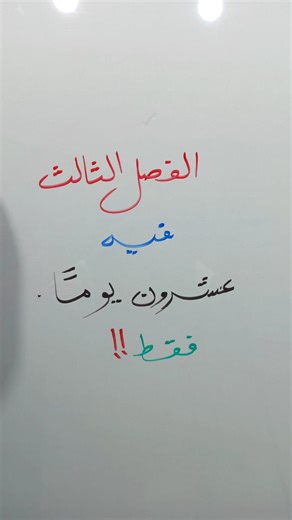 الفصل الثالث
فيه
عشرون يومًا.
فقط!!